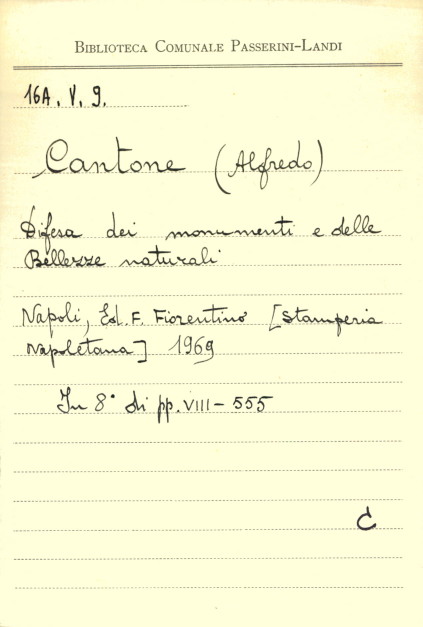 BIBLIOTECA COMUNALE PASSERINI-LANDI
16A. V. 9.
Cantone (Alfredo)
Difesa dei monumenti e delle
Bellezze naturali
Napoli, Ed. F. Fiorentino [Stamperia
Napoletana] 1969
In 8° di pp. VIII - 555
C